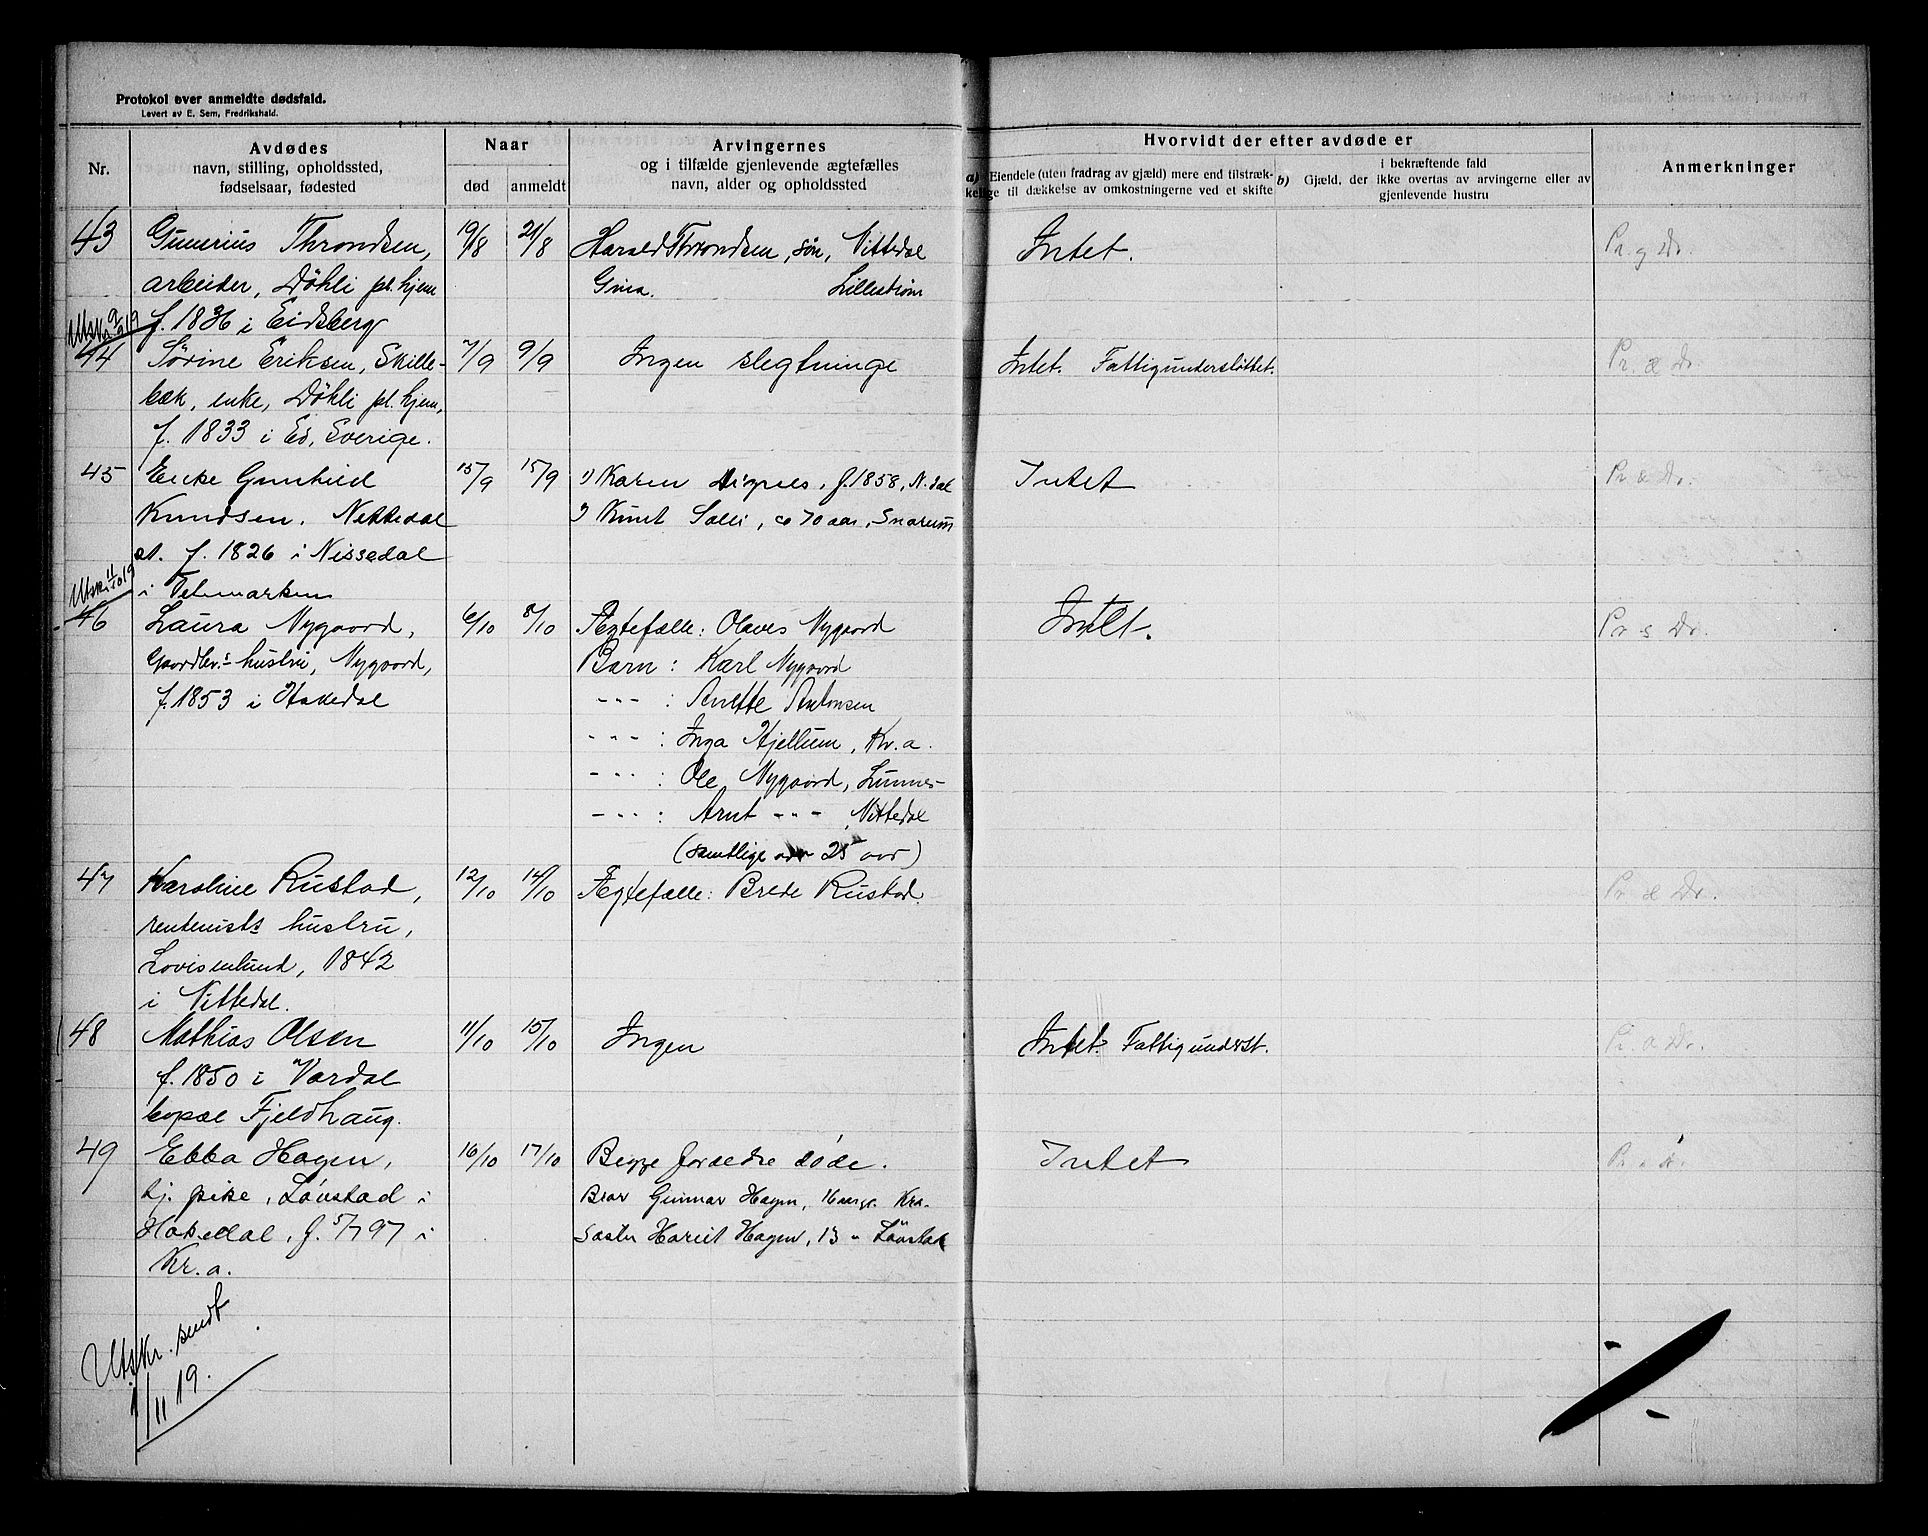 Protokol over anmeldte dødsfald.
Levert av E. Sem, Fredrikshald.
Nr.
Avdødes
navn, stilling, opholdssted,
fødselsaar, fødested
Naar
død
anmeldt
Arvingernes
og i tilfælde gjenlevende ægtefælles
navn, alder og opholdssted
Hvorvidt der efter avdøde er
a) Eiendele (uten fradrag av gjæld) mere end tilstræk-
kelige til dækkelse av omkostningerne ved et skifte
i bekræftende fald
b) Gjæld, der ikke overtas av arvingerne eller av
gjenlevende hustru
Anmerkninger
43 Gunerius Throndsen, 19/8 21/8 Harald Throndsen, søn, Nittedal Intet.
arbeider, Døhli pl. hjem Gina. Lillestrøm
f. 1836 i Eidsberg
Utskr. 9/9 19
44 Sørine Eriksen, Skille- 7/9 9/9 Ingen slegtninge Intet. Fattigunderstøttet.
bæk, enke, Døhli pl. hjem,
f. 1833 i Ed, Sverige.
45 Enke Gunhild 15/9 15/9 1) Karen Signes, f. 1858, N.dal Intet
Knudsen, Nittedal 2) Knut Solli, ca 70 aar, Snarum
st. f. 1826 i Nissedal
i Telemarken
Utskr. 11/10 19
46 Laura Nygaard, 6/10 8/10 Ægtefælle: Olaves Nygaard Intet.
Gaardbr.s hustru, Nygaard, Barn: Karl Nygaard
f. 1853 i Hakedal -"- : Anette Antonsen
-"- : Inga Hjellum, Kr.a.
-"- : Ole Nygaard, Lunner
-"- : Arnt -"- , Nittedal
(samtlige over 25 aar)
47 Karoline Rustad, 12/10 14/10 Ægtefælle: Brede Rustad.
rentenists hustru,
Lovisenlund, 1842
i Nittedal.
48 Mathias Olsen 11/10 15/10 Ingen Intet. Fattigunderst.
f. 1850 i Vardal
bopæl Fjeldhaug.
49 Ebba Hagen, 16/10 17/10 Begge forældre døde. Intet
tj. pike, Løvstad i Bror Gunnar Hagen, 16 aar, Kra.
Hakedal, f. 5/7 97 i Søster Hariet Hagen, 13 " Løvstad
Kr.a.
Utskr. sendt
1/11 19.